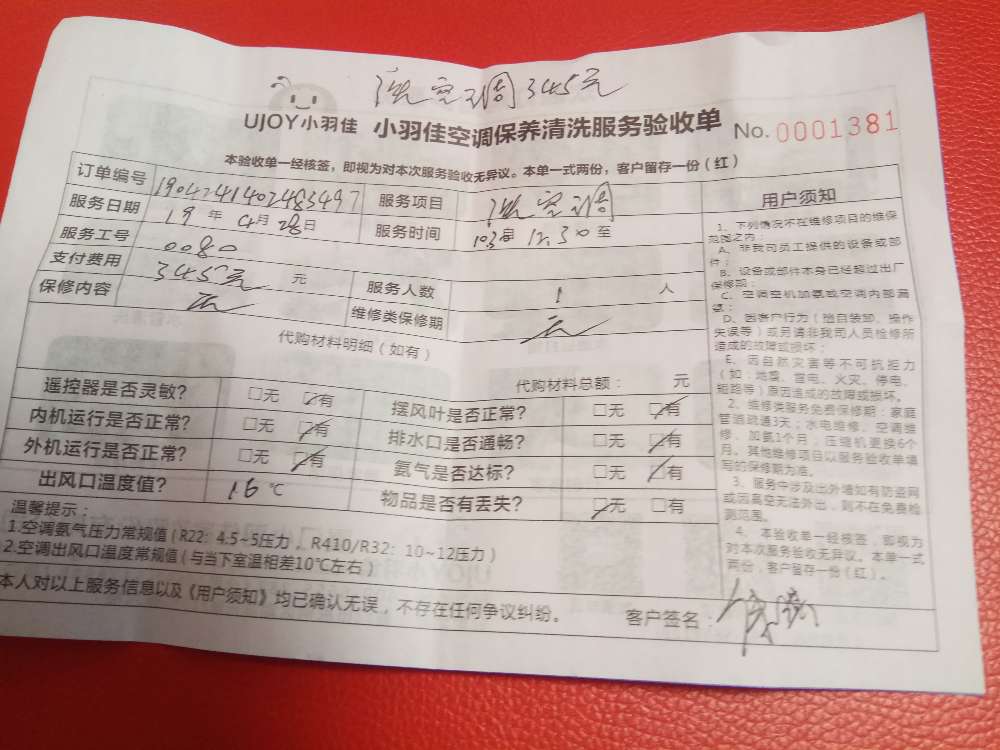 洗空调345元
UJOY小羽佳 小羽佳空调保养清洗服务验收单 No.0001381
本验收单一经核签，即视为对本次服务验收无异议。本单一式两份，客户留存一份（红）
订单编号 1904241402483497 服务项目 洗空调
服务日期 19年4月28日 服务时间 12:30至
服务工号 0080
支付费用 345元 元 服务人数 1 人
保修内容 无 维修类保修期 无
代购材料明细（如有）
代购材料总额： 元
遥控器是否灵敏? □无 □有 摆风叶是否正常? □无 □有
内机运行是否正常? □无 □有 排水口是否通畅? □无 □有
外机运行是否正常? □无 □有 氨气是否达标? □无 □有
出风口温度值? 16℃ 物品是否有丢失? □无 □有
温馨提示：
1.空调氨气压力常规值（R22：4.5~5压力，R410/R32：10~12压力）
2.空调出风口温度常规值（与当下室温相差10℃左右）
本人对以上服务信息以及《用户须知》均已确认无误，不存在任何争议纠纷。
客户签名：
用户须知
1、下列情况不在维修项目的维保
范围之内：
A、非我司员工提供的设备或部
件；
B、设备或部件本身已经超过出厂
保修期；
C、空调空机加氨或空调内部漏
氨；
D、因客户行为（擅自装卸、操作
失误等）或另请非我司人员检修所
造成的故障或损坏；
E、因自然灾害等不可抗拒力
（如：地震、雷电、火灾、停电、
短路等）原因造成的故障或损坏。
2、维修类服务免费保修期：家庭
管道疏通3天；水电维修、空调维
修、加氨1个月；压缩机更换6个
月。其他维修项目以服务验收单填
写的保修期为准。
3、服务中涉及出外墙如有防盗网
或因高空无法外出，则不在免费检
测范围。
4、本验收单一经核签，即视为
对本次服务验收无异议。本单一式
两份，客户留存一份（红）。